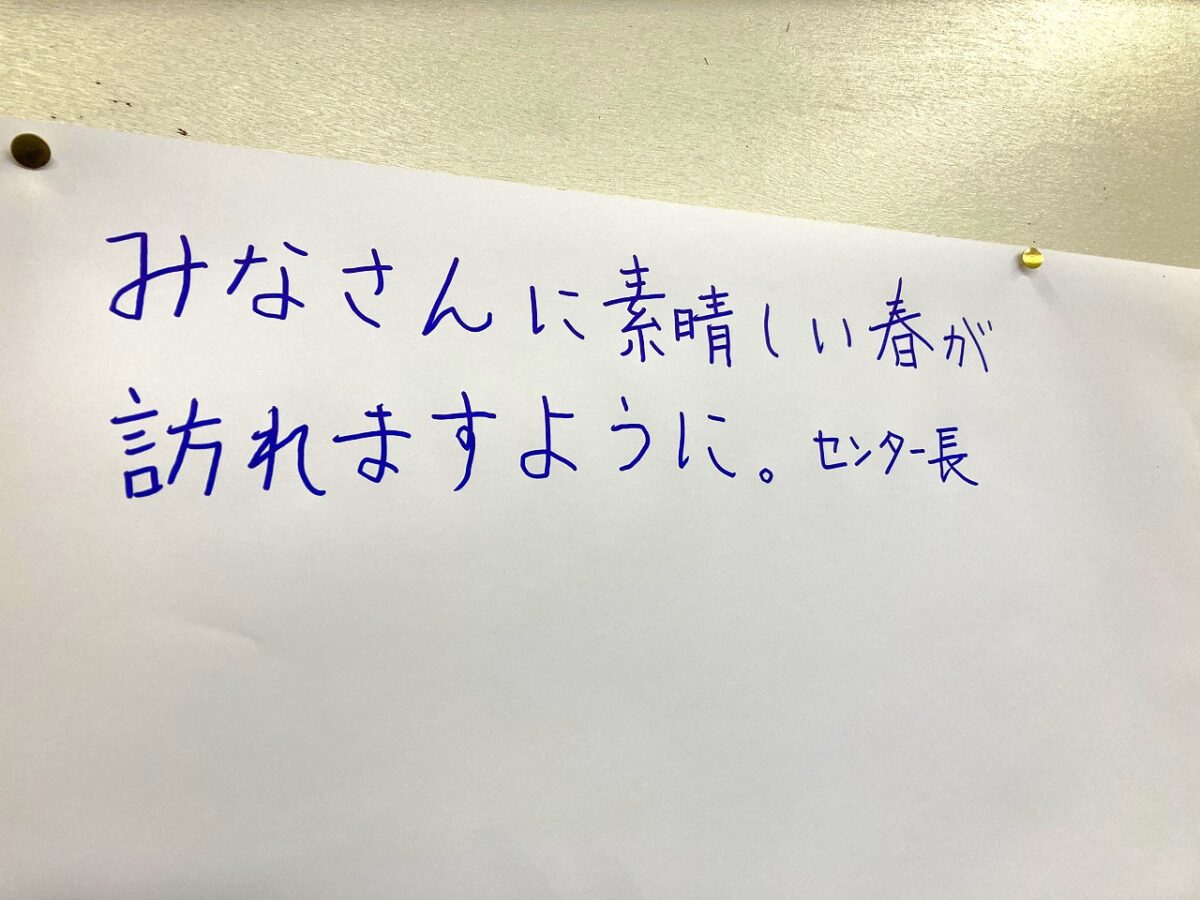 みなさんに素晴しい春が
訪れますように。センター長